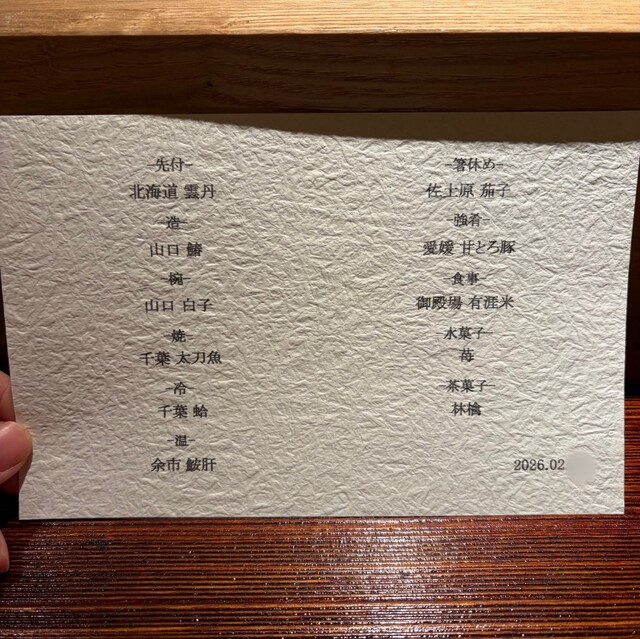 -先付-
北海道 雲丹
-造-
山口 鰆
-椀-
山口 白子
-焼-
千葉 太刀魚
-冷-
千葉 蛤
-温-
余市 鮟肝
-箸休め-
佐土原 茄子
-強肴-
愛媛 甘とろ豚
-食事-
御殿場 有涯米
-水菓子-
苺
-茶菓子-
林檎
2026.02